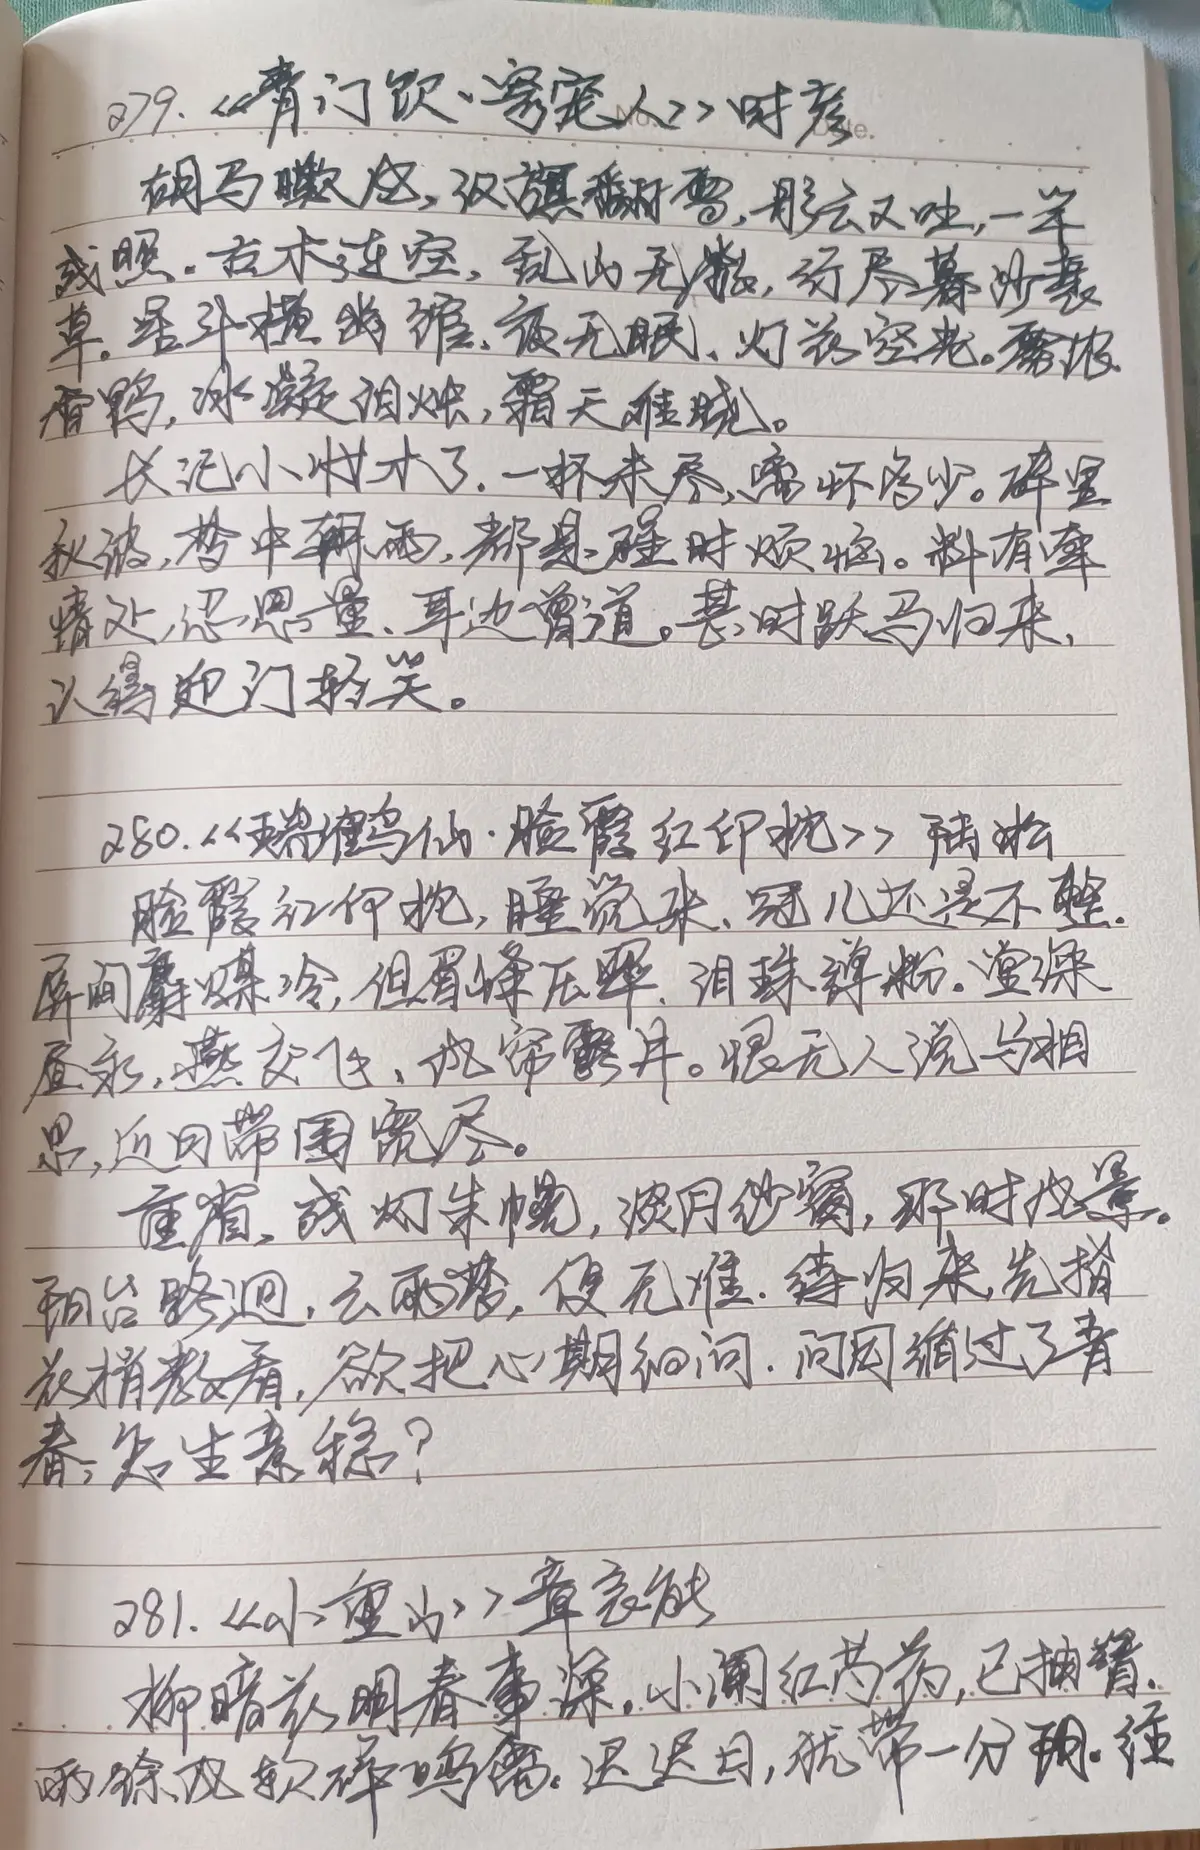 279.《青门饮·寄宠人》时彦
No.
Date.
胡马嘶风,汉旗翻雪,彤云又吐,一竿
残照。古木连空,乱山无数,行尽暮沙衰
草。星斗横幽馆,夜无眠,灯花空老。雾浓
香鸭,冰凝泪烛,霜天难晓。
长记小妆才了,一杯未尽,离怀多少。醉里
秋波,梦中朝雨,都是醒时烦恼。料有牵
情处,忍思量,耳边曾道。甚时跃马归来,
认得迎门轻笑。
280.《瑞鹤仙·脸霞红印枕》陆淞
脸霞红印枕,睡觉来、冠儿还是不整.
屏间麝煤冷,但眉峰压翠,泪珠弹粉。堂深
昼永,燕交飞、风帘露井。恨无人说与相
思,近日带围宽尽。
重省,残灯朱幌,淡月纱窗,那时风景。
阳台路迥,云雨梦,便无准.待归来,先指
花梢教看,欲把心期细问.问因循过了青
春,怎生意稳?
281.《小重山》章良能
柳暗花明春事深.小阑红芍药,已抽簪.
雨余风软碎鸣禽.迟迟日,犹带一分阴.往